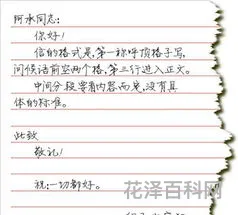 阿承同志:
你好!
信的格式是,第一称呼顶格子写,
问候话前空两个格,第三行进入正文。
中间分段要看内容而定,没有具
体的标准。
此致
敬礼!
祝:一切都好。
花泽百科网